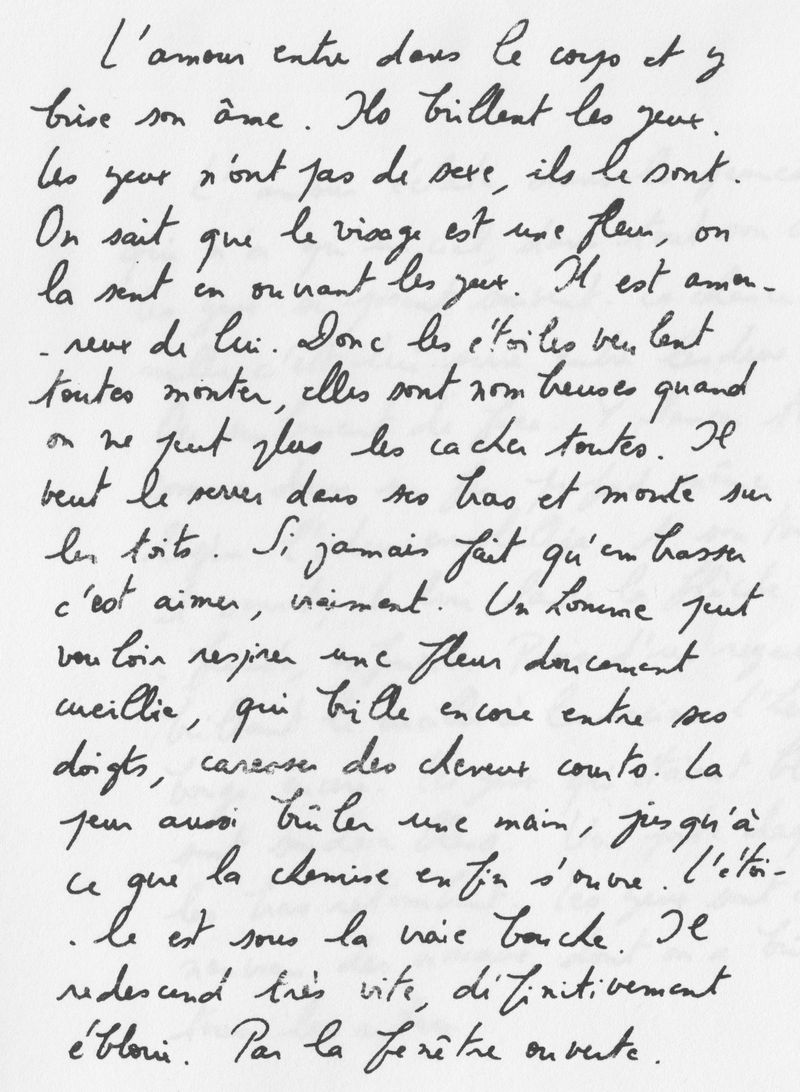 L'amour entre dans le corps et y
brise son âme. Ils brillent les yeux.
Les yeux n'ont pas de sexe, ils le sont.
On sait que le visage est une fleur, on
la sent en ouvrant les yeux. Il est amou-
-reux de lui. Donc les étoiles veulent
toutes monter, elles sont nombreuses quand
on ne peut plus les cacher toutes. Il
veut le serrer dans ses bras et monte sur
les toits. Si jamais fait qu'embrasser
c'est aimer, vraiment. Un homme peut
vouloir respirer une fleur doucement
cueillie, qui brille encore entre ses
doigts, caresser des cheveux courts. La
peur aussi brûler une main, jusqu'à
ce que la chemise enfin s'ouvre. L'étoi-
-le est sous la vraie bouche. Il
redescend très vite, définitivement
ébloui. Par la fenêtre ouverte.